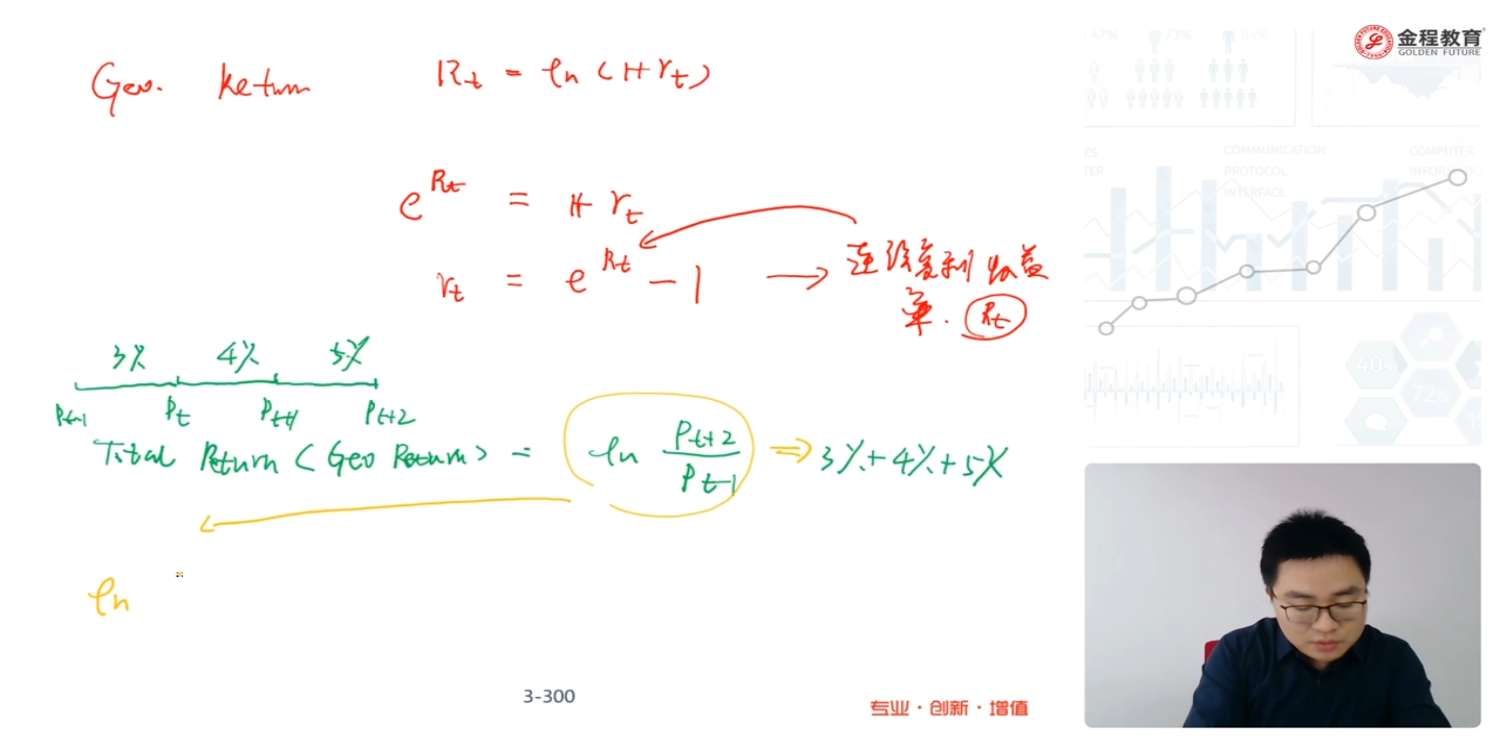 Geo. Return R_t = ln(1+r_t)
e^{R_t} = 1+r_t
r_t = e^{R_t} - 1 → 连续复利收益
率. R_t
3% 4% 5%
P_{t-1} P_t P_{t+1} P_{t+2}
Total Return (Geo Return) = ln \frac{P_{t+2}}{P_{t-1}} ⇒ 3%+4%+5%
ln
3-300
专业·创新·增值
金程教育
GOLDEN FUTURE
COMMUNICATION
PROTOCOL
INTERFACE
COMPUTER
40%
72%